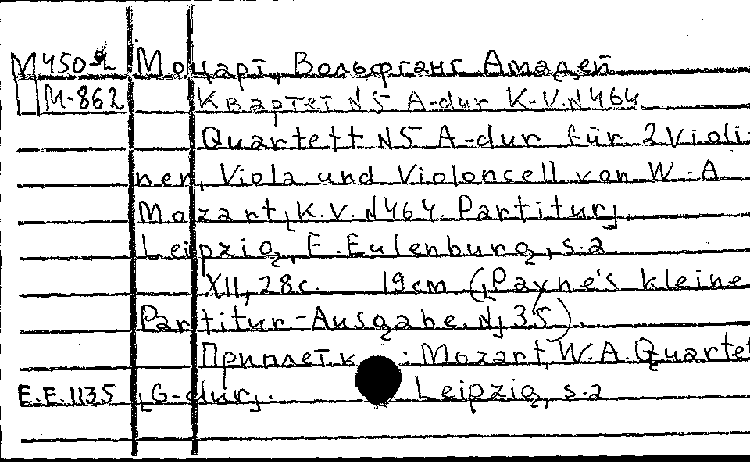 М450-2 Моцарт, Вольфганг Амадей
М-862 Квартет N5 A-dur K-V.N464
Quartett N5 A-dur für 2 Violi-
nen, Viola und Violoncell von W.A
Mozart, K.V. N464 Partitur,
Leipzig, E. Eulenburg, s.a
XII, 28c. 19cm (Payne's kleine
Partitur-Ausgabe. N 35).
Приплет. к : Mozart, W.A. Quartet
E.E.1135 G-dur. Leipzig, s.a